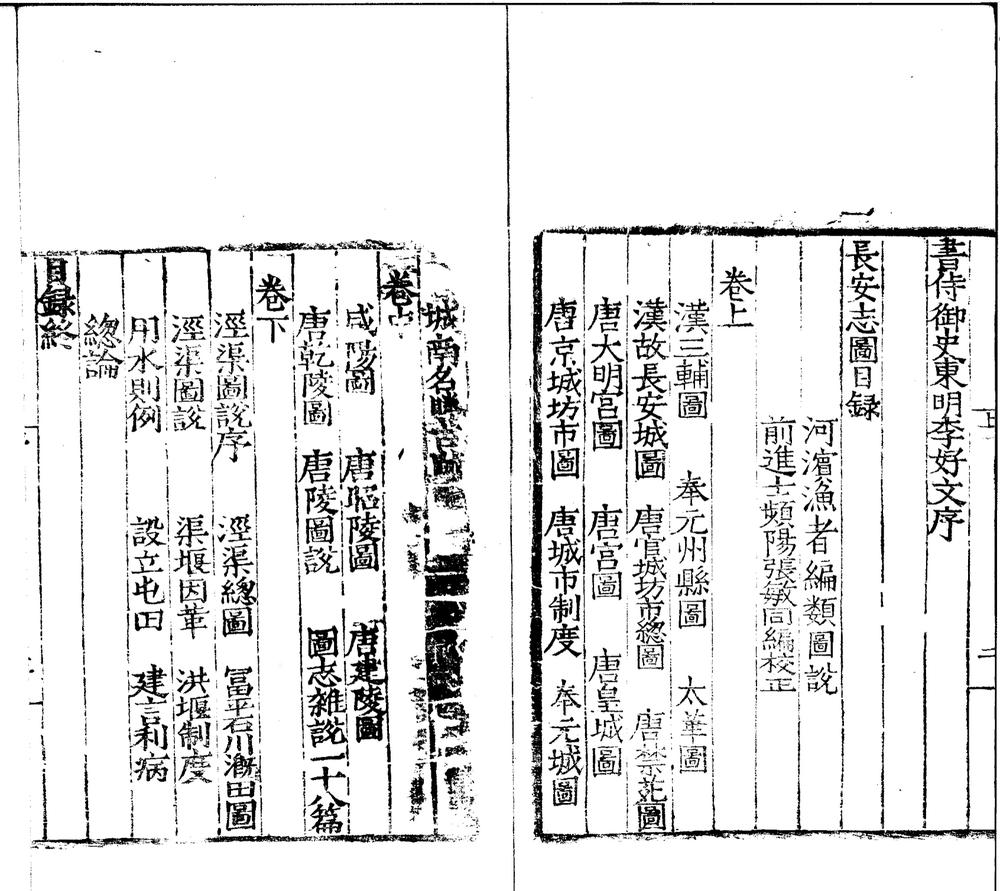 書侍御史東明李好文序
長安志圖目録
河濱漁者編類圖説
前進士頻陽張敏同編校正
卷上
漢三輔圖 奉元州縣圖 太華圖
漢故長安城圖 唐宫城坊市總圖 唐禁苑圖
唐大明宫圖 唐宫圖 唐皇城圖
唐京城坊市圖 唐城市制度 奉元城圖
城南名勝古蹟
卷中
咸陽圖 唐昭陵圖 唐建陵圖
唐乾陵圖 唐陵圖説 圖志雜説一十八篇
卷下
涇渠圖説序 涇渠總圖 冨平石川溉田圖
涇渠圖説 渠堰因革 洪堰制度
用水則例 設立屯田 建言利病
總論
目録終